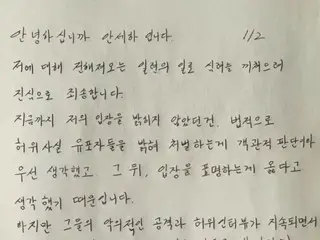 안녕하십니까 안세하 입니다. 1/2
저에 대해 전해져오는 일련의 일로 심려를 끼쳐드려
진심으로 죄송합니다.
지금까지 저의 입장을 밝히지 않았던건, 법적으로
허위사실 유포자들을 밝혀 처벌하는게 객관적 판단이라
우선 생각했고, 그 뒤, 입장을 표명하는게 옳다고
생각 했기 때문입니다.
하지만 그들의 악의적인 공격과 허위인터뷰가 지속되면서